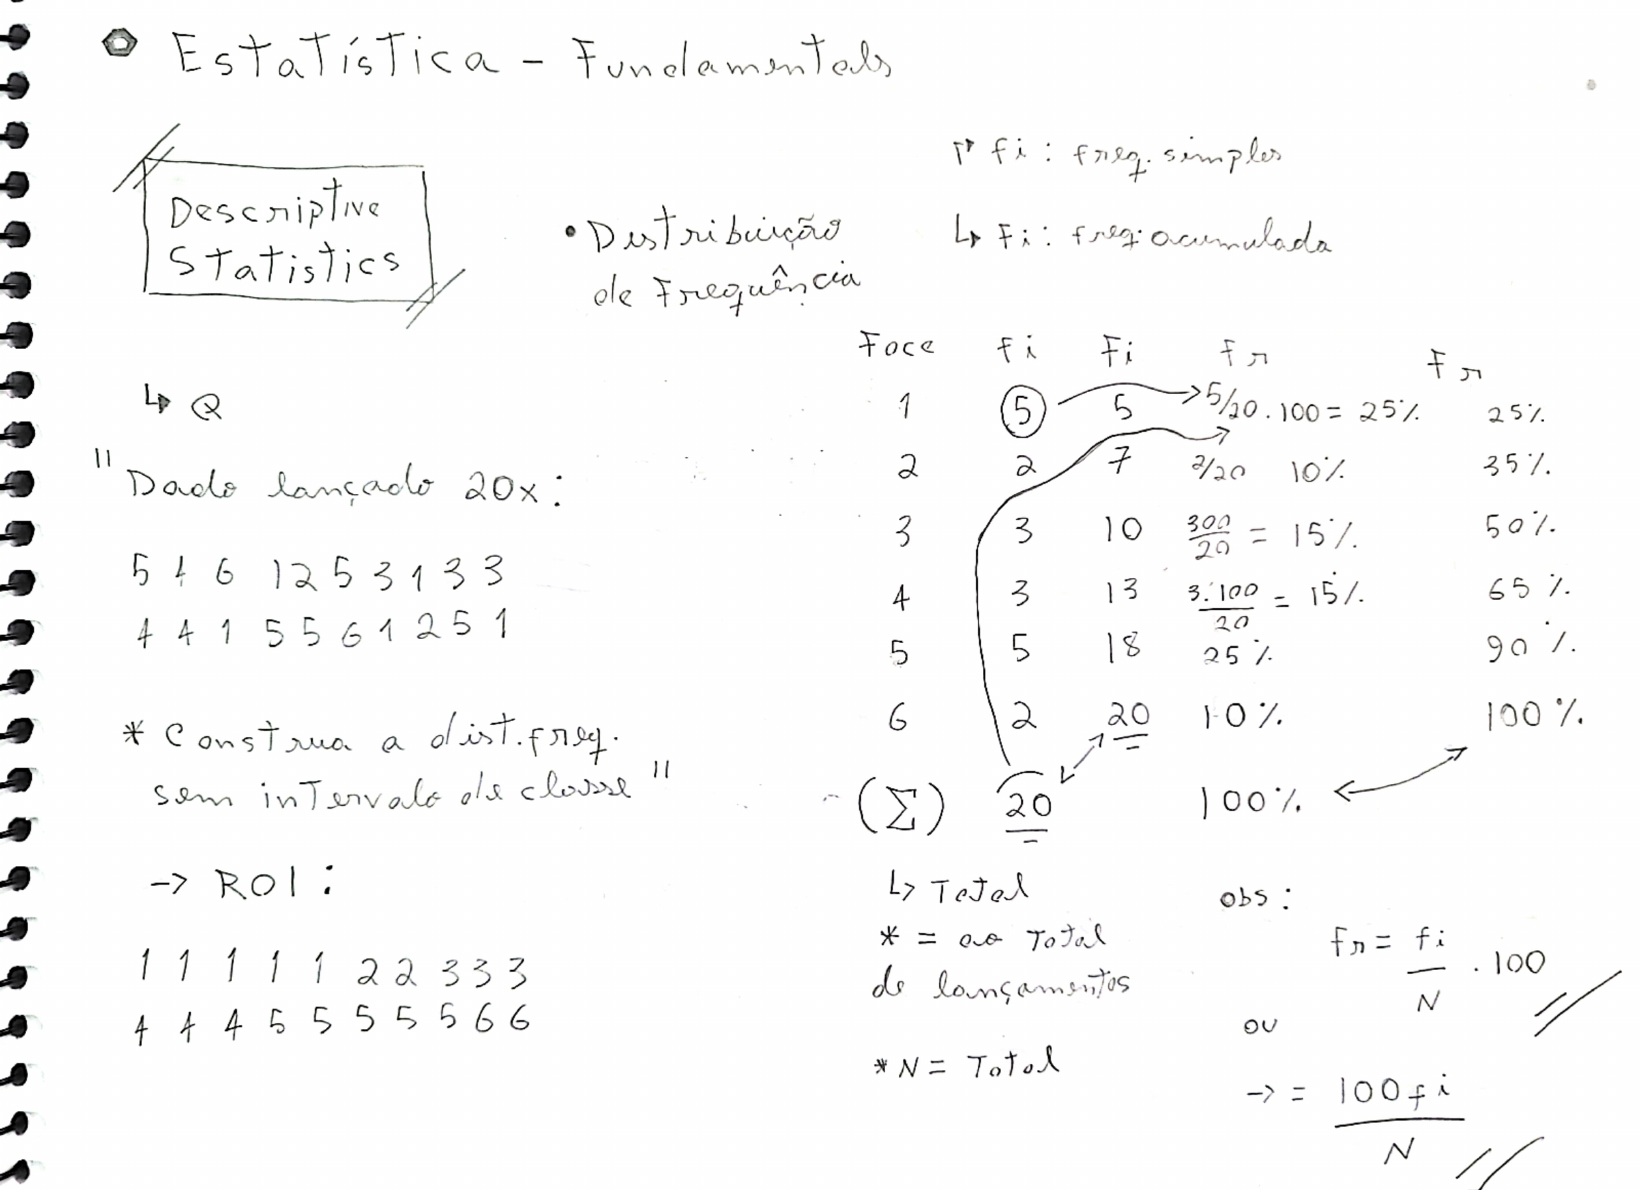 Estatística - Fundamentals
Descriptive
Statistics
• Distribuição
de Frequência
fi : freq. simples
↳ Fi : freq. acumulada
↳ Q
"Dado lançado 20x :
5 4 6 1 2 5 3 1 3 3
4 4 1 5 5 6 1 2 5 1
* Construa a dist. freq.
sem intervalo de classe"
-> ROl :
1 1 1 1 1 2 2 3 3 3
4 4 4 5 5 5 5 5 6 6
Face fi Fi fr Fr
1 5 5 5/20 . 100 = 25% 25%
2 2 7 2/20 10% 35%
3 3 10 300/20 = 15% 50%
4 3 13 3.100/20 = 15% 65%
5 5 18 25% 90%
6 2 20 10% 100%
(Σ) 20 100%
↳ Total
* = ao Total
de lançamentos
* N = Total
obs :
fr = fi/N . 100
ou
-> = 100fi/N